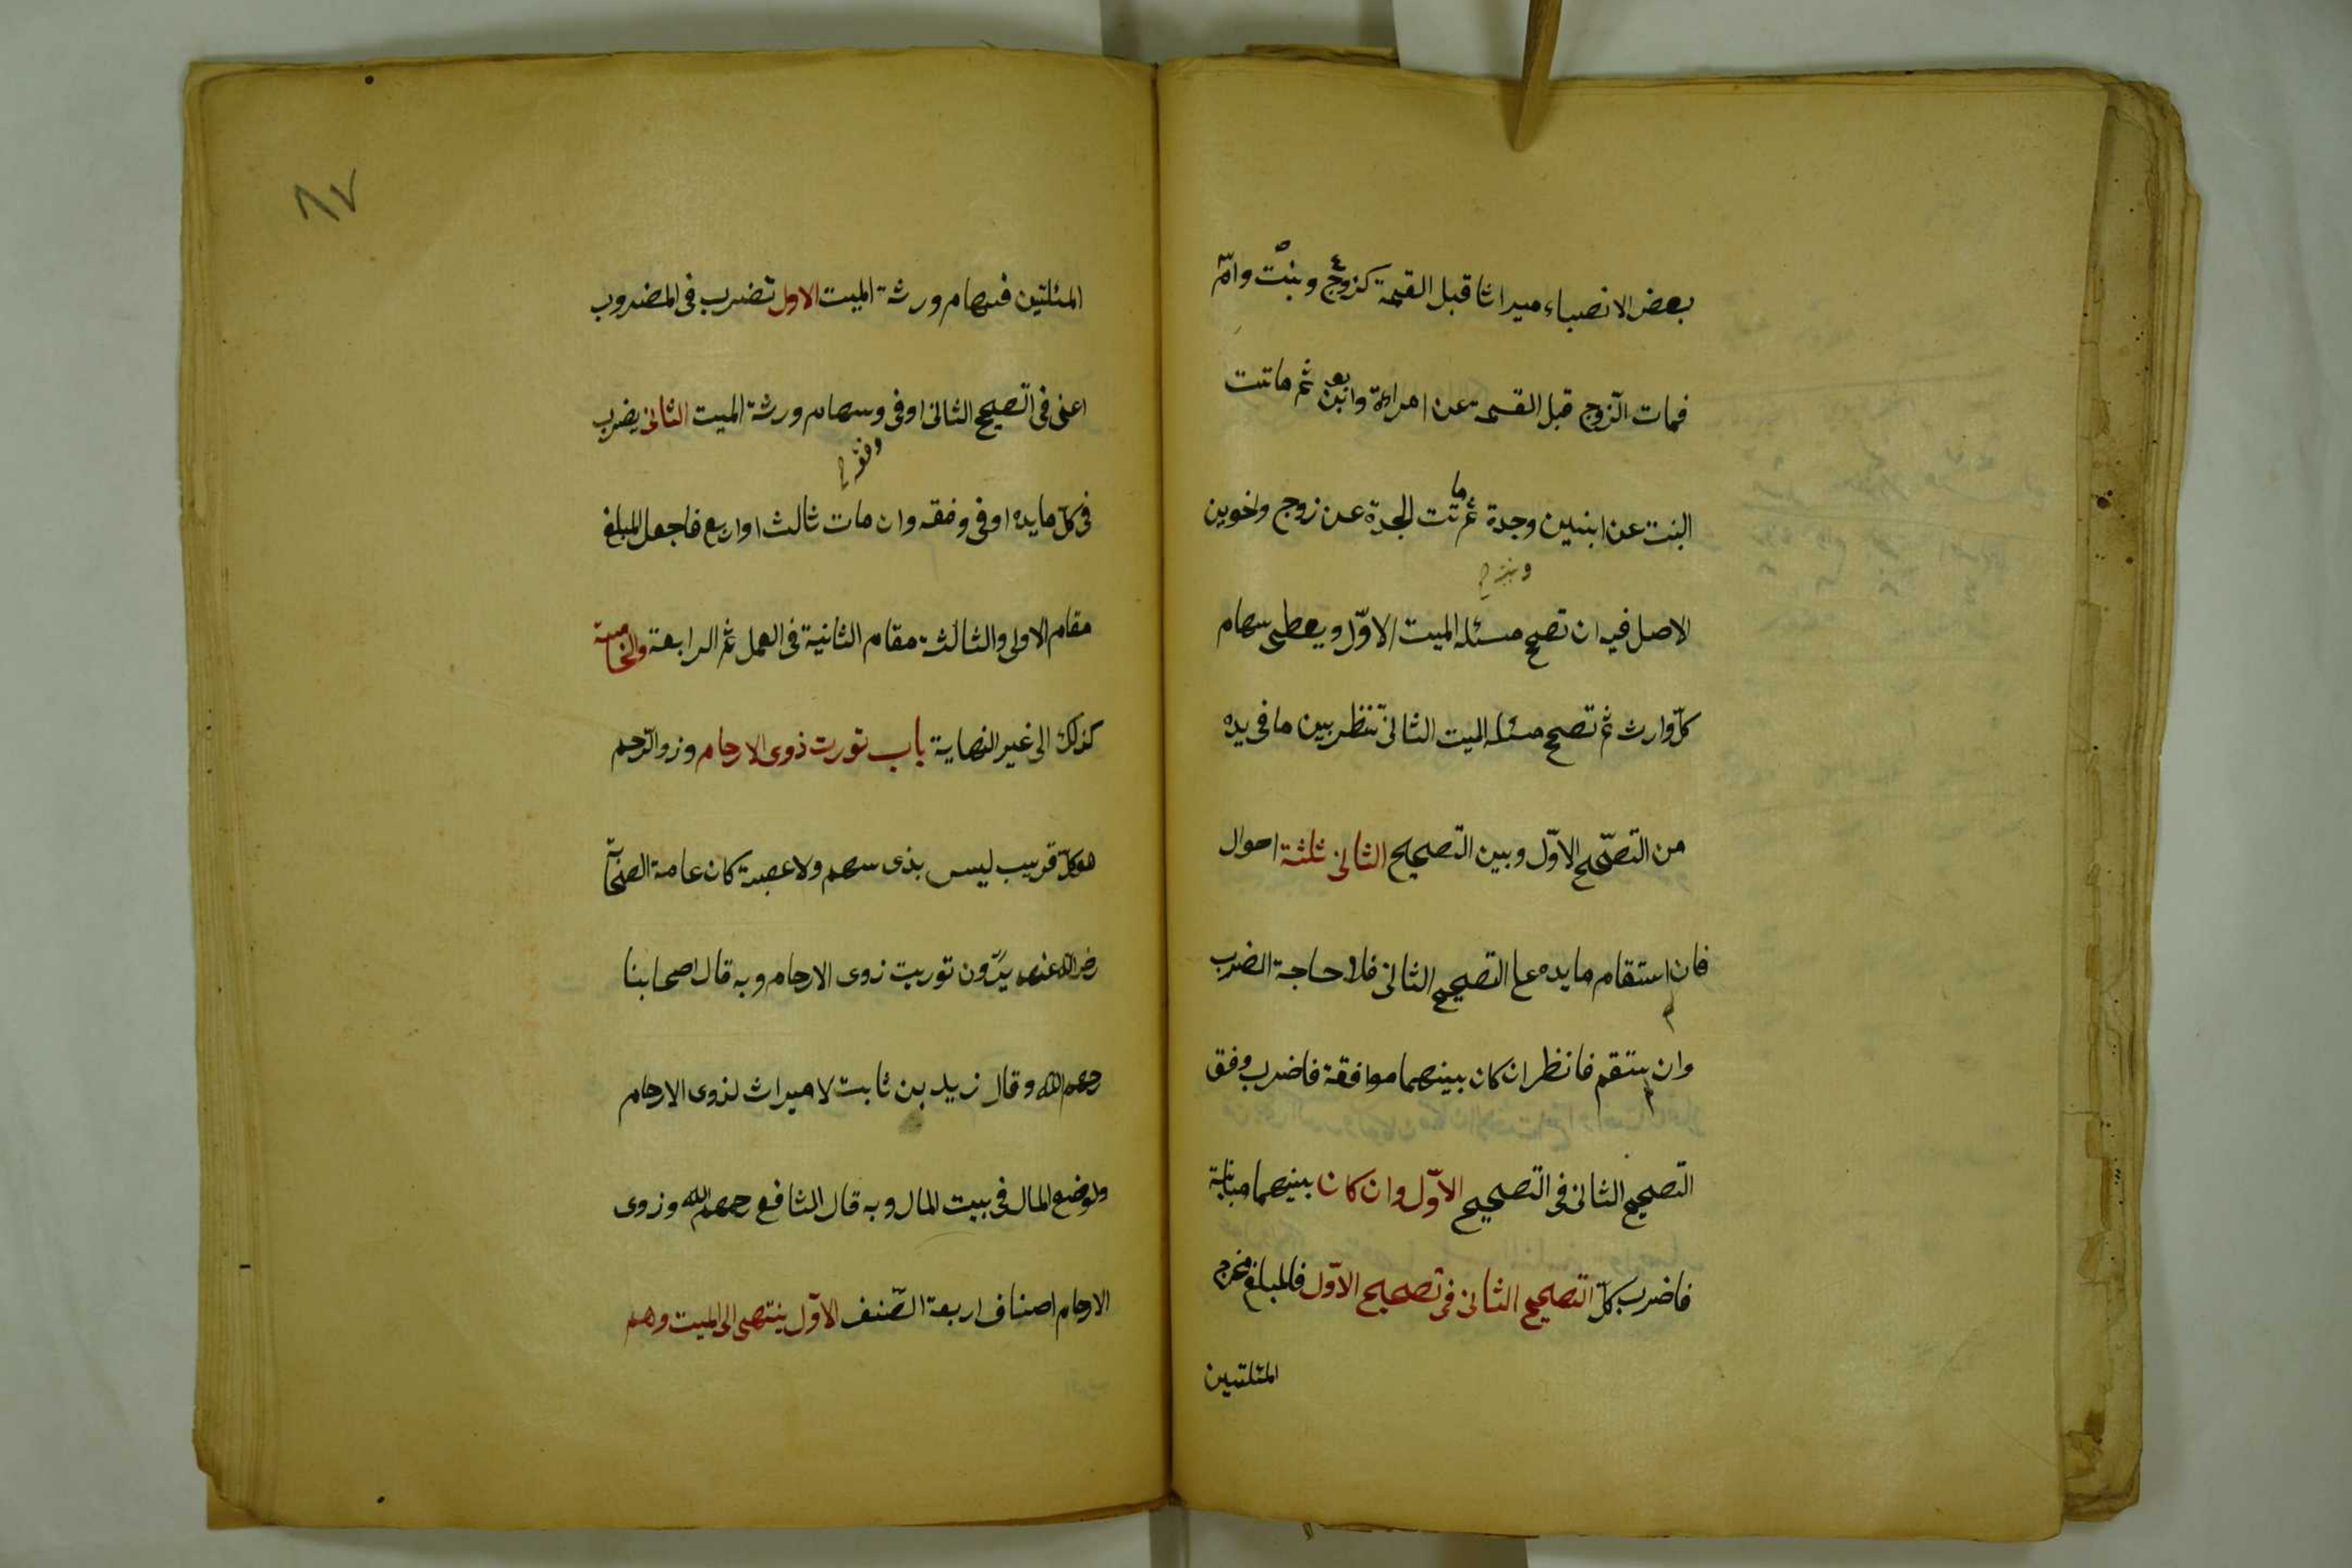 بعض الانصباء ميراثا قبل القسمة كزوج وبنت وامّ
فمات الزوج قبل القسمة عن امراءة وابوين ثم ماتت
البنت عن ابنين وجدة ثم ماتت الجدة عن زوج واخوين
الاصل فيه ان تصح مسئله الميت الاوّل ويعطى سهام
كلّ وارث ثم تصح مسئله الميت الثانى تنظر بين ما فى يده
من التصحيح الاوّل وبين التصحيح الثانى ثلثة احوال
فان استقام ما يده على التصحيح الثانى فلا حاجة الضرب
وان لم يستقم فانظر ان كان بينهما موافقة فاضرب وفق
التصحيح الثانى فى التصحيح الاوّل وان كان بينهما مباينة
فاضرب كلّ التصحيح الثانى فى تصحيح الاوّل فالمبلغ مخرج
المئلتين
٨٧
المئلتين فسهام ورثة الميت الاول تضرب فى المضروب
اعنى فى التصحيح الثانى او فى وسهام ورثة الميت الثانى يضرب
وفقه
فى كلّ ما يده او فى وفقه وان مات ثالث او اربع فاجعل المبلغ
مقام الاولى والثالثة مقام الثانية فى العمل ثم الرابعة والخامسة
كذلك الى غير النهاية باب تورت ذوى الارحام وذو الرحم
هو كلّ قريب ليس بذى سهم ولا عصبة كان عامة الصحابة
رضى الله عنهم يرّون توريت ذوى الارحام وبه قال اصحابنا
رحمهم الله وقال زيد بن ثابت لا ميراث لذوى الارحام
ويوضع المال فى بيت المال وبه قال الشافع رحمهم الله وذوى
الارحام اصناف اربعة الصّنف الاوّل ينتهى الى الميت وهم